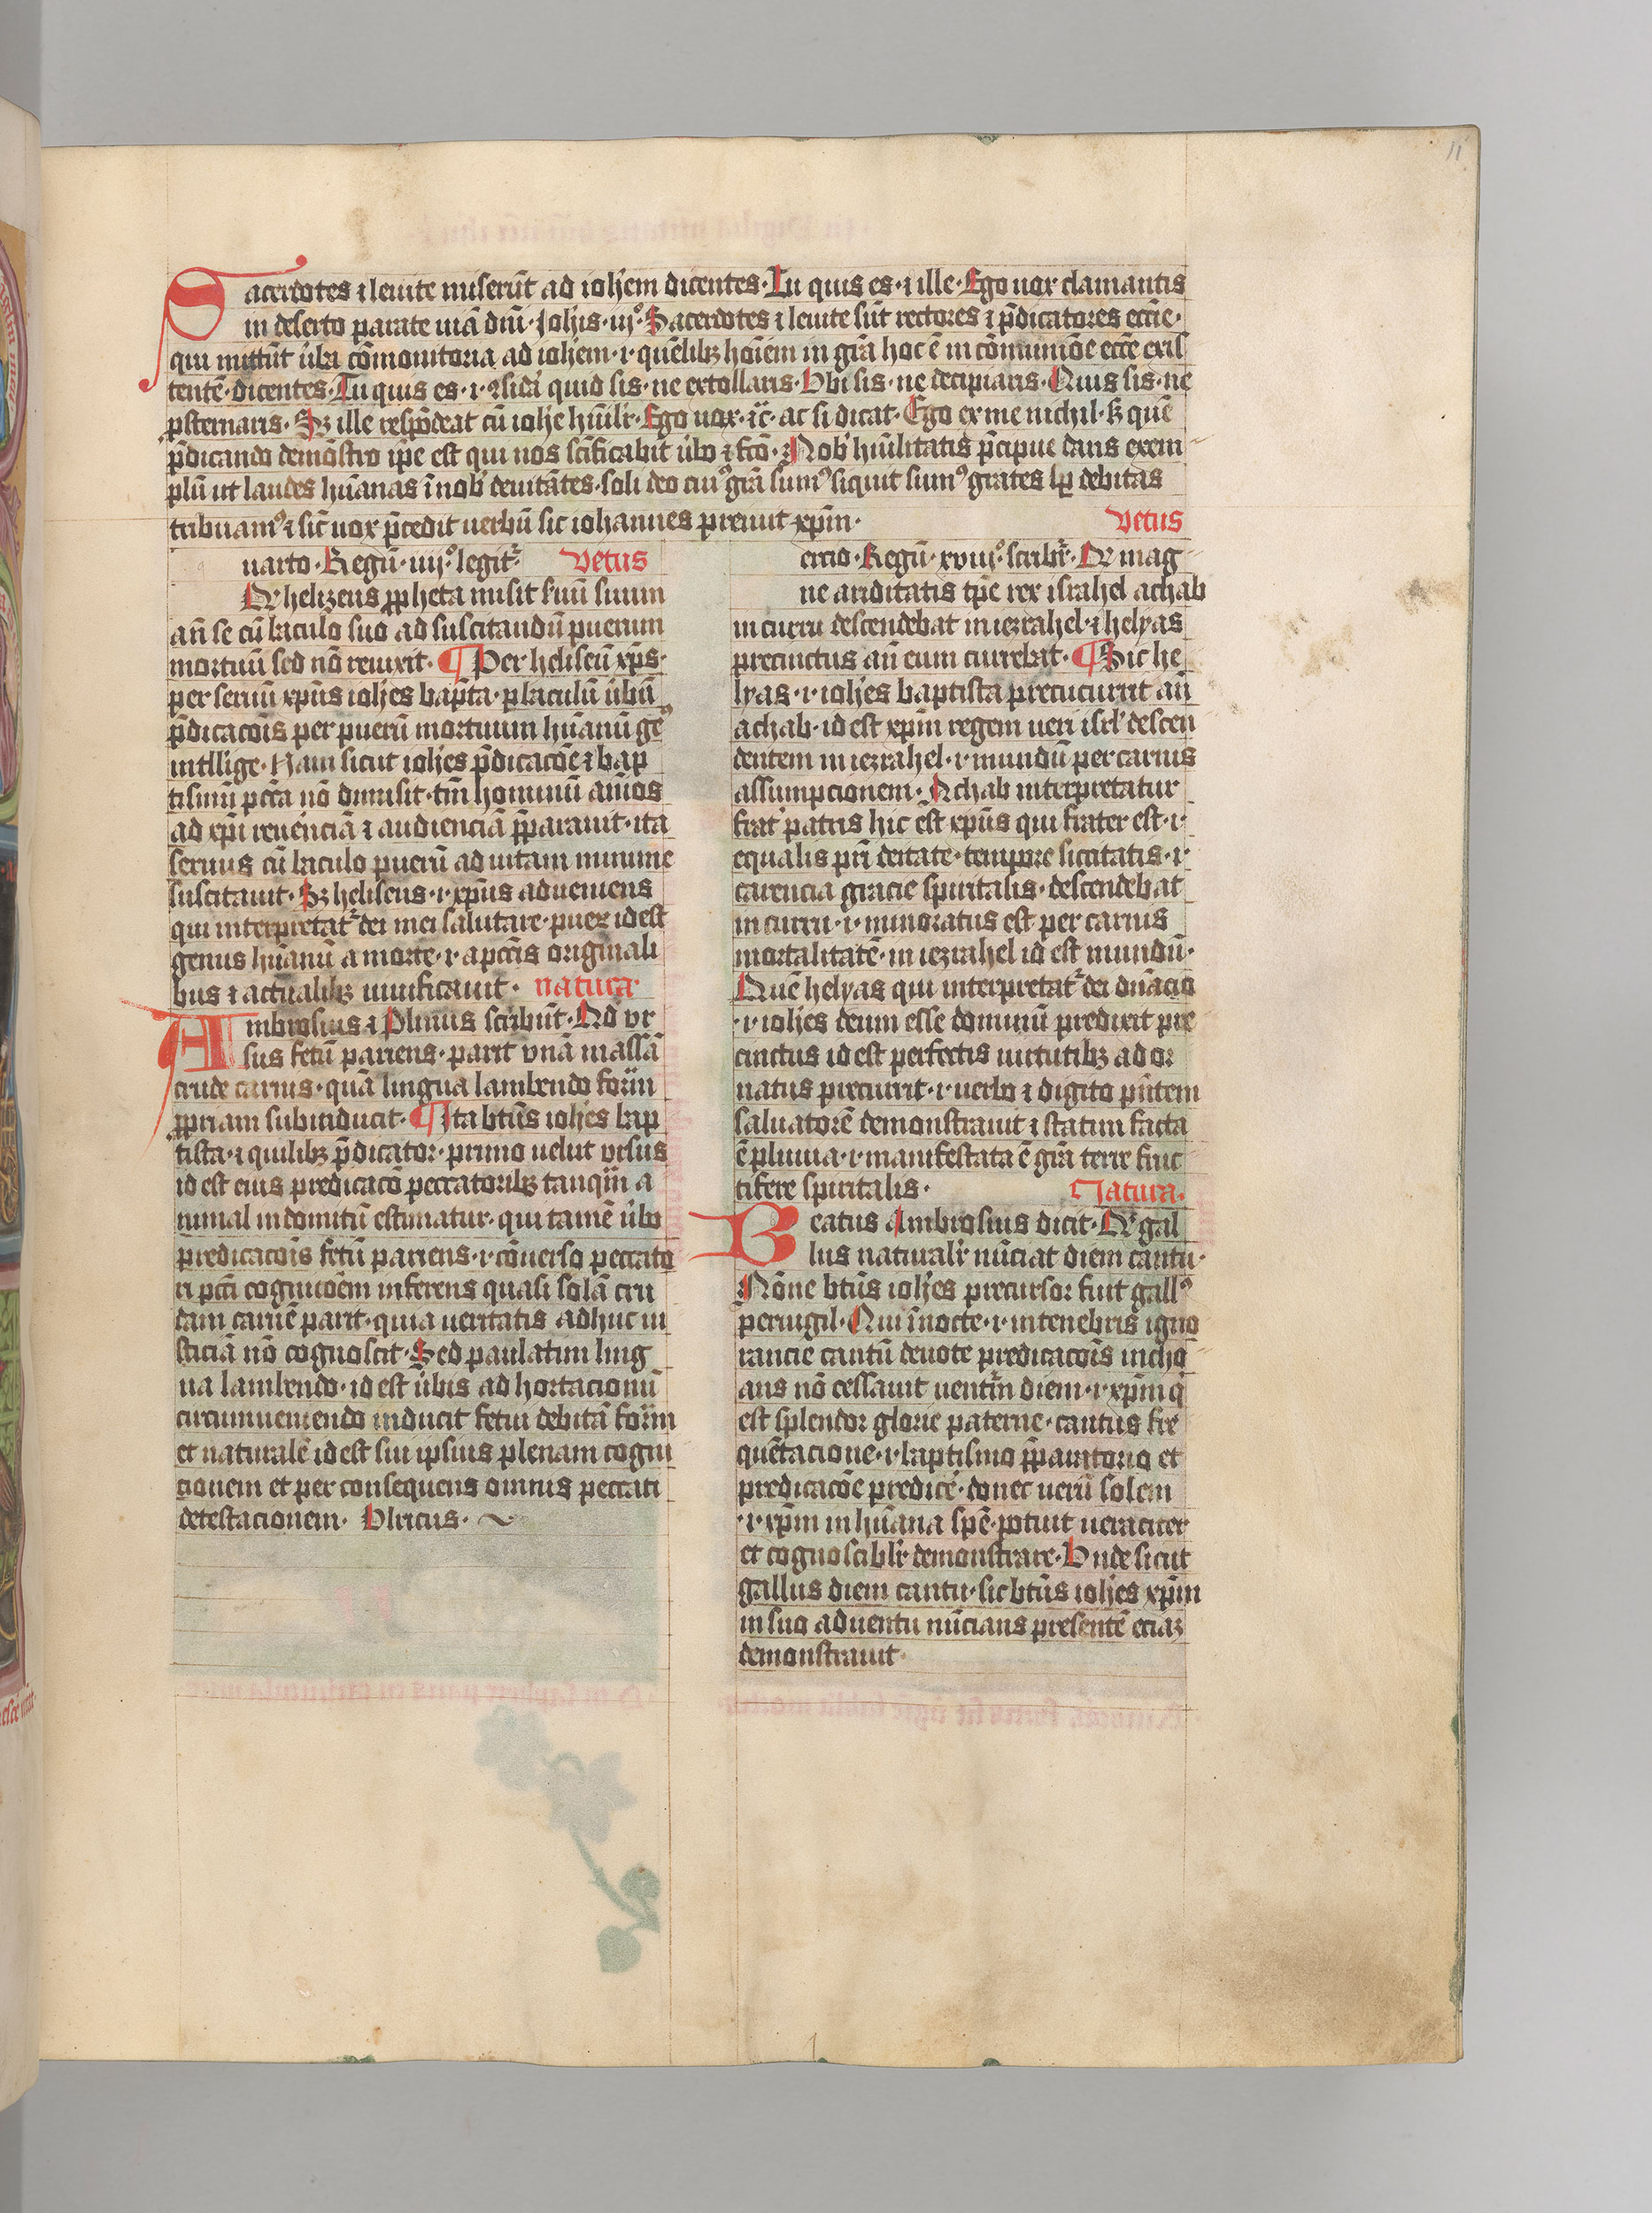 Sacerdotes ⁊ leuite miserūt ad ioh̄em dicentes· Tu quis es· ⁊ ille· Ego uox clamantis
in deserto parate uiā dn̄i· Joh̄is· iij°· Sacerdotes ⁊ leuite sūt rectores ⁊ p̄dicatores ecc̄ie·
qui mittūt ūba cōmonitoria ad ioh̄em· i· quēlibꝫ hoīem in gr̄a hoc ē in cōmuniōe ecc̄e exis
tentē· dicentes· Tu quis es· i· ꝯsid'a quid sis· ne extollaris· Vbi sis· ne decipiaris· Quis sis· ne
ꝓsternaris· Sꝫ ille respōdeat cū ioh̄e hūilr̄· Ego uox· ⁊c̄· ac si dicat· Ego ex me nichil· sꝫ quē
p̄dicando demōstro ip̄e est qui nos sc̄ificabit ūbo ⁊ fc̄o· Nob' hūilitatis p̄cipue dans exem
plū ut laudes hūanas ī nob' deuitātes· soli deo cui⁹ gr̄a sum⁹ siquit sum⁹ grates lꝑ debitas
tribuam⁹ ⁊ sic̄ uox p̄cedit uerbū sic iohannes preuit xp̄m· vetus
uarto· Regū· iiij°· legit᷑ vetus
Qr helizeus ꝓpheta misit s'uū suum
an̄ se cū baculo suo ad suscitandū puerum
mortuū sed nō reuixit· ¶ Per heliseū xp̄s·
per seruū xp̄us ioh̄es bap̄ta· ꝑ baculū ūbū
p̄dicacōis per puerū mortuum hūanū gē⁹
intllige· Nam sicut ioh̄es p̄dicacōe ⁊ bap
tismū pctā nō dimisit· tm̄ hominū aīos
ad xp̄i reu̾enciā ⁊ audienciā p̄parauit· ita
seruus cū baculo puerū ad uitam minime
suscitauit· Sꝫ heliseus· i· xp̄us adueniens
qui interpretat᷑ dei mei salutare· puer id est
genus hūanū a morte· i· a pctīs originali
bus ⁊ actualibꝫ uiuificauit· natura
Ambrosius ⁊ Plinius scribūt· Qd vr
sus fetū pariens· parit vnā massā
crude carnis· quā lingua lambendo form̄
ꝓpriam subinducit· ¶ Ita bt̄us ioh̄es bap
tista· ⁊ quilibꝫ p̄dicator· primo uelut vrsus
id est eius predicacō peccatoribꝫ tanqm̄ a
nimal indomitū estimatur· qui tamē ūbo
predicacōis fetū pariens· i· cōuerso peccato
ri pctī cognicōem inferens quasi solā cru
dam carnē parit· quia ueritatis adhuc iu
sticiā nō cognoscit· Sed paulatim ling
ua lambendo· id est ūbis ad hortacionū
circumueniendo inducit fetui debitā form̄
et naturalē id est sui ipsius plenam cogni
cionem et per consequens omnis peccati
detestacionem· Vlricus·
ercio· Regū· xviij°· scribit᷑· Qr mag
ne ariditatis tp̄e rex israhel achab
in curru descendebat in iezrahel· ⁊ helyas
precinctus an̄ eum currebat· ¶ Sic he
lyas· i· ioh̄es baptista precucurrit an̄
achab· id est xp̄m regem ueri isrl' descen
dentem in iezrahel· i· mundū per carnis
assumpcionem· Achab interpretatur
frat' patris hic est xp̄us qui frater est· i·
equalis pri deitate· tempore siccitatis· i·
carencia gracie spiritalis· descendebat
in curru· i· minoratus est per carnis
mortalitatē· in iezrahel id est mundū·
Quē helyas qui interpretat᷑ dei dn̄acio
·i· ioh̄es deum esse dominū predixit pre
cinctus id est perfectis uirtutibꝫ ador
natus precurrit· i· uerbo ⁊ digito pn̄tem
saluatorē demonstrauit ⁊ statim facta
ē pluuia· i· manifestata ē gr̄a terre fruc
tifere spiritalis· Natura·
Beatus Ambrosius dicit· Qr gal
lus naturalr̄ nūciat diem cantu·
Nōne bt̄us ioh̄es precursor fuit gall⁹
peruigil· Qui ī nocte· i· in tenebris igno
rancie cantū deuote predicacōis incho
ans nō cessauit uentm̄ diem· i· xp̄m q'
est splendor glorie paterne· cantus fre
quētacione· i· baptismo p̄paratorio et
predicacōe predice· donec uerū solem
·i· xp̄m in hūana spē· potuit ueraciter
et cognoscibilr̄ demonstrare· Vnde sicut
gallus diem cantu· sic bt̄us ioh̄es xp̄m
in suo aduentu nūcians presentē eciaꝫ
demonstrauit·